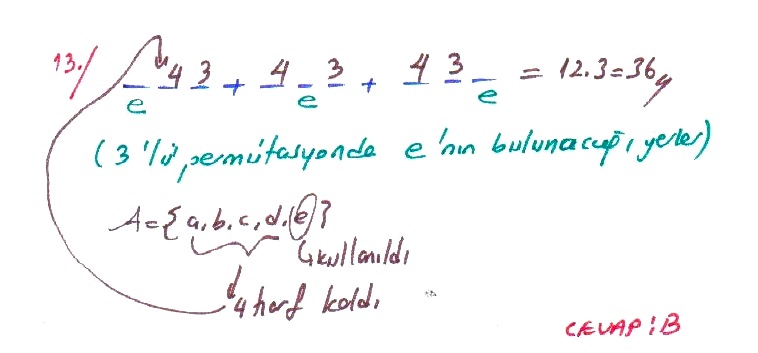 13./ e 4 3 + 4 e 3 + 4 3 e = 12.3=36
(3'lü permütasyonda e'nin bulunacağı yerler)
A={a,b,c,d,e}
kullanıldı
4 harf kaldı
CEVAP:B